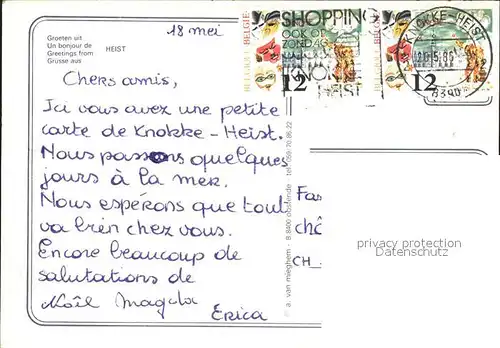 18 mei
Groeten uit
Un bonjour de
Greetings from HEIST
Grüsse aus
Chers amis,
Ici vous avez une petite
carte de Knokke-Heist.
Nous passons quelques
jours à la mer.
Nous espérons que tout
va bien chez vous.
Encore beaucoup de
salutations de
Noël Magda
Erica
SHOPPING
OOK OP
ZONDAG
KNOKKE
HEIST
BELGIE
12
KNOKKE-HEIST
8390
12
a. van mieghem - B 8400 oostende - tel. 059-70.86.22
Fas
châ
CH
privacy protection
Datenschutz